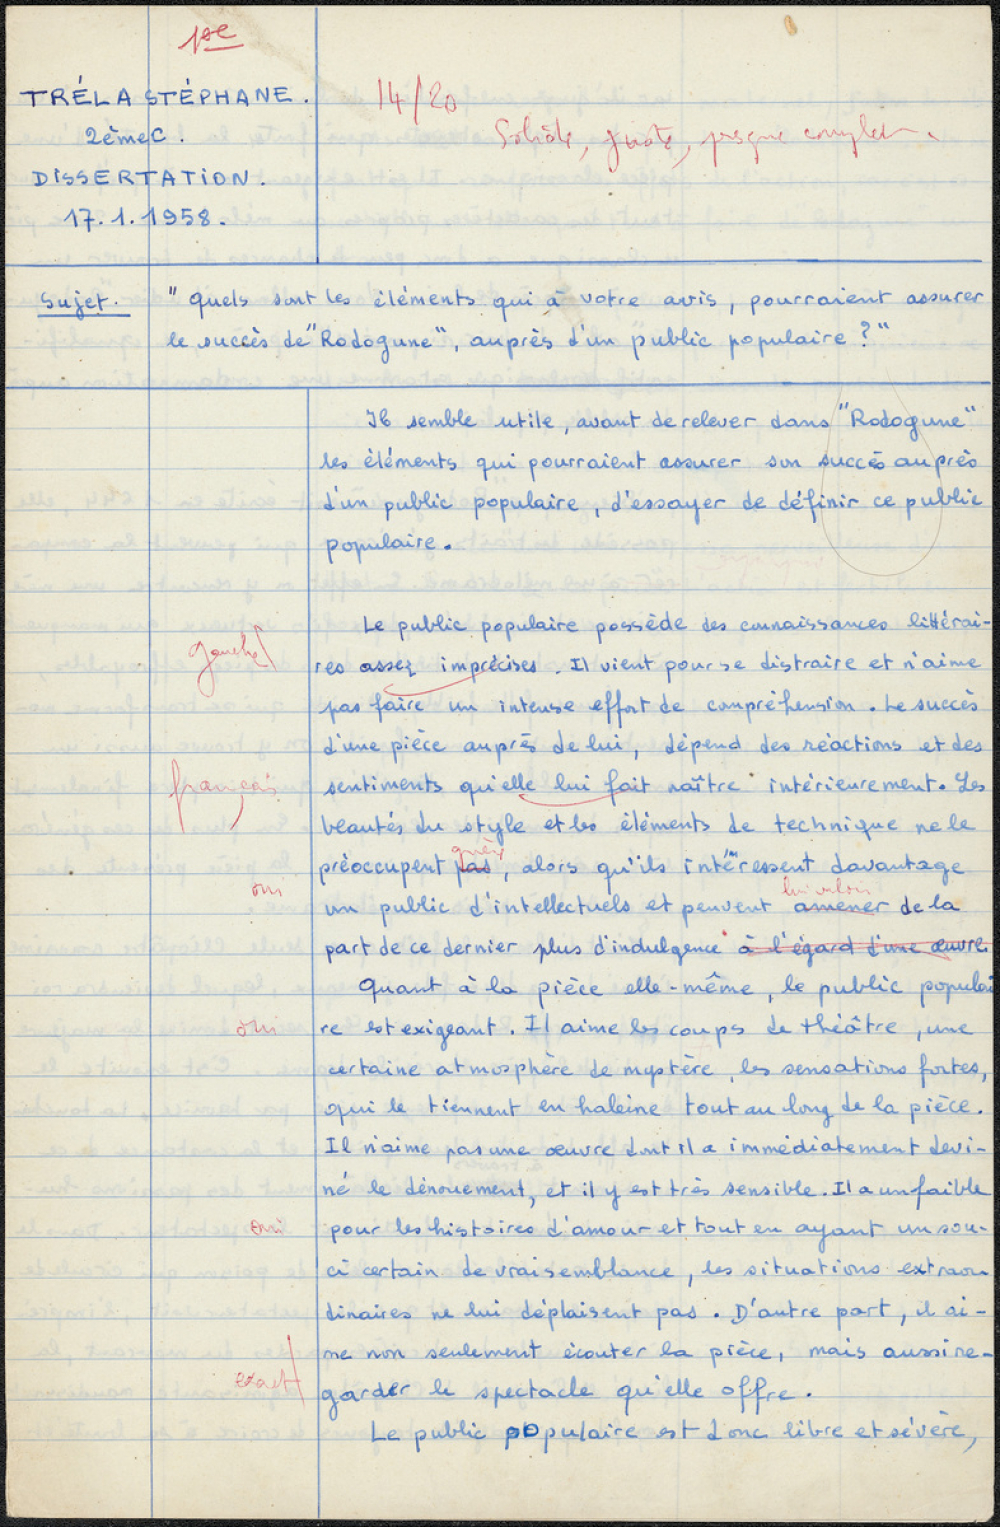 1re
TRÉLA STÉPHANE.
14/20
2èmeC.
Solide, juste, presque complet.
DISSERTATION.
17.1.1958.
Sujet. "Quels sont les éléments qui à votre avis, pourraient assurer
le succès de "Rodogune", auprès d'un public populaire ?"
Il semble utile, avant de relever dans "Rodogune"
les éléments qui pourraient assurer son succès auprès
d'un public populaire, d'essayer de définir ce public
populaire.
Le public populaire possède des connaissances littérai-
gauche
res assez imprécises. Il vient pour se distraire et n'aime
pas faire un intense effort de compréhension. Le succès
d'une pièce auprès de lui, dépend des réactions et des
français
sentiments qu'elle lui fait naître intérieurement. Les
beautés du style et les éléments de technique ne le
guère
préoccupent pas, alors qu'ils intéressent davantage
oui
lui valoir
un public d'intellectuels et peuvent amener de la
part de ce dernier plus d'indulgence à l'égard d'une œuvre.
Quant à la pièce elle-même, le public populai
oui
re est exigeant. Il aime les coups de théâtre, une
certaine atmosphère de mystère, les sensations fortes,
qui le tiennent en haleine tout au long de la pièce.
Il n'aime pas une œuvre dont il a immédiatement devi-
né le dénouement, et il y est très sensible. Il a un faible
oui
pour les histoires d'amour et tout en ayant un sou-
ci certain de vraisemblance, les situations extraor
dinaires ne lui déplaisent pas. D'autre part, il ai-
me non seulement écouter la pièce, mais aussi re-
exact
garder le spectacle qu'elle offre.
Le public populaire est donc libre et sévère,